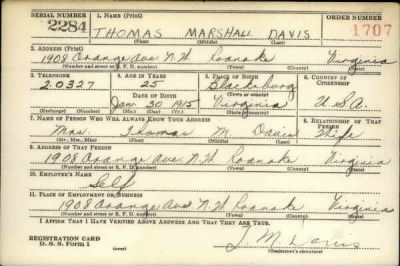 SERIAL NUMBER
1. NAME (Print)
ORDER NUMBER
2284
THOMAS MARSHALL DAVIS
1707
(First) (Middle) (Last)
2. ADDRESS (Print)
1908 Orange Ave N.W. Roanoke Virginia
(Number and street or R. F. D. number) (Town) (County) (State)
3. TELEPHONE
4. AGE IN YEARS
5. PLACE OF BIRTH
6. COUNTRY OF CITIZENSHIP
2.0327
25
Blacksburg
(Town or county)
Jan. 30 1915
Virginia
U.S.A.
(Exchange) (Number)
(Mo.) (Day) (Yr.)
(State or country)
7. NAME OF PERSON WHO WILL ALWAYS KNOW YOUR ADDRESS
8. RELATIONSHIP OF THAT PERSON
Mrs. Thomas M. Davis Wife
(Mr., Mrs., Miss) (First) (Middle) (Last)
9. ADDRESS OF THAT PERSON
1908 Orange Ave N.W. Roanoke Virginia
(Number and street or R. F. D. number) (Town) (County) (State)
10. EMPLOYER'S NAME
Self
11. PLACE OF EMPLOYMENT OR BUSINESS
1908 Orange Ave N.W. Roanoke Virginia
(Number and street or R. F. D. number) (Town) (County) (State)
I AFFIRM THAT I HAVE VERIFIED ABOVE ANSWERS AND THAT THEY ARE TRUE.
REGISTRATION CARD
D. S. S. Form 1
T. M. Davis
(Registrant's signature)